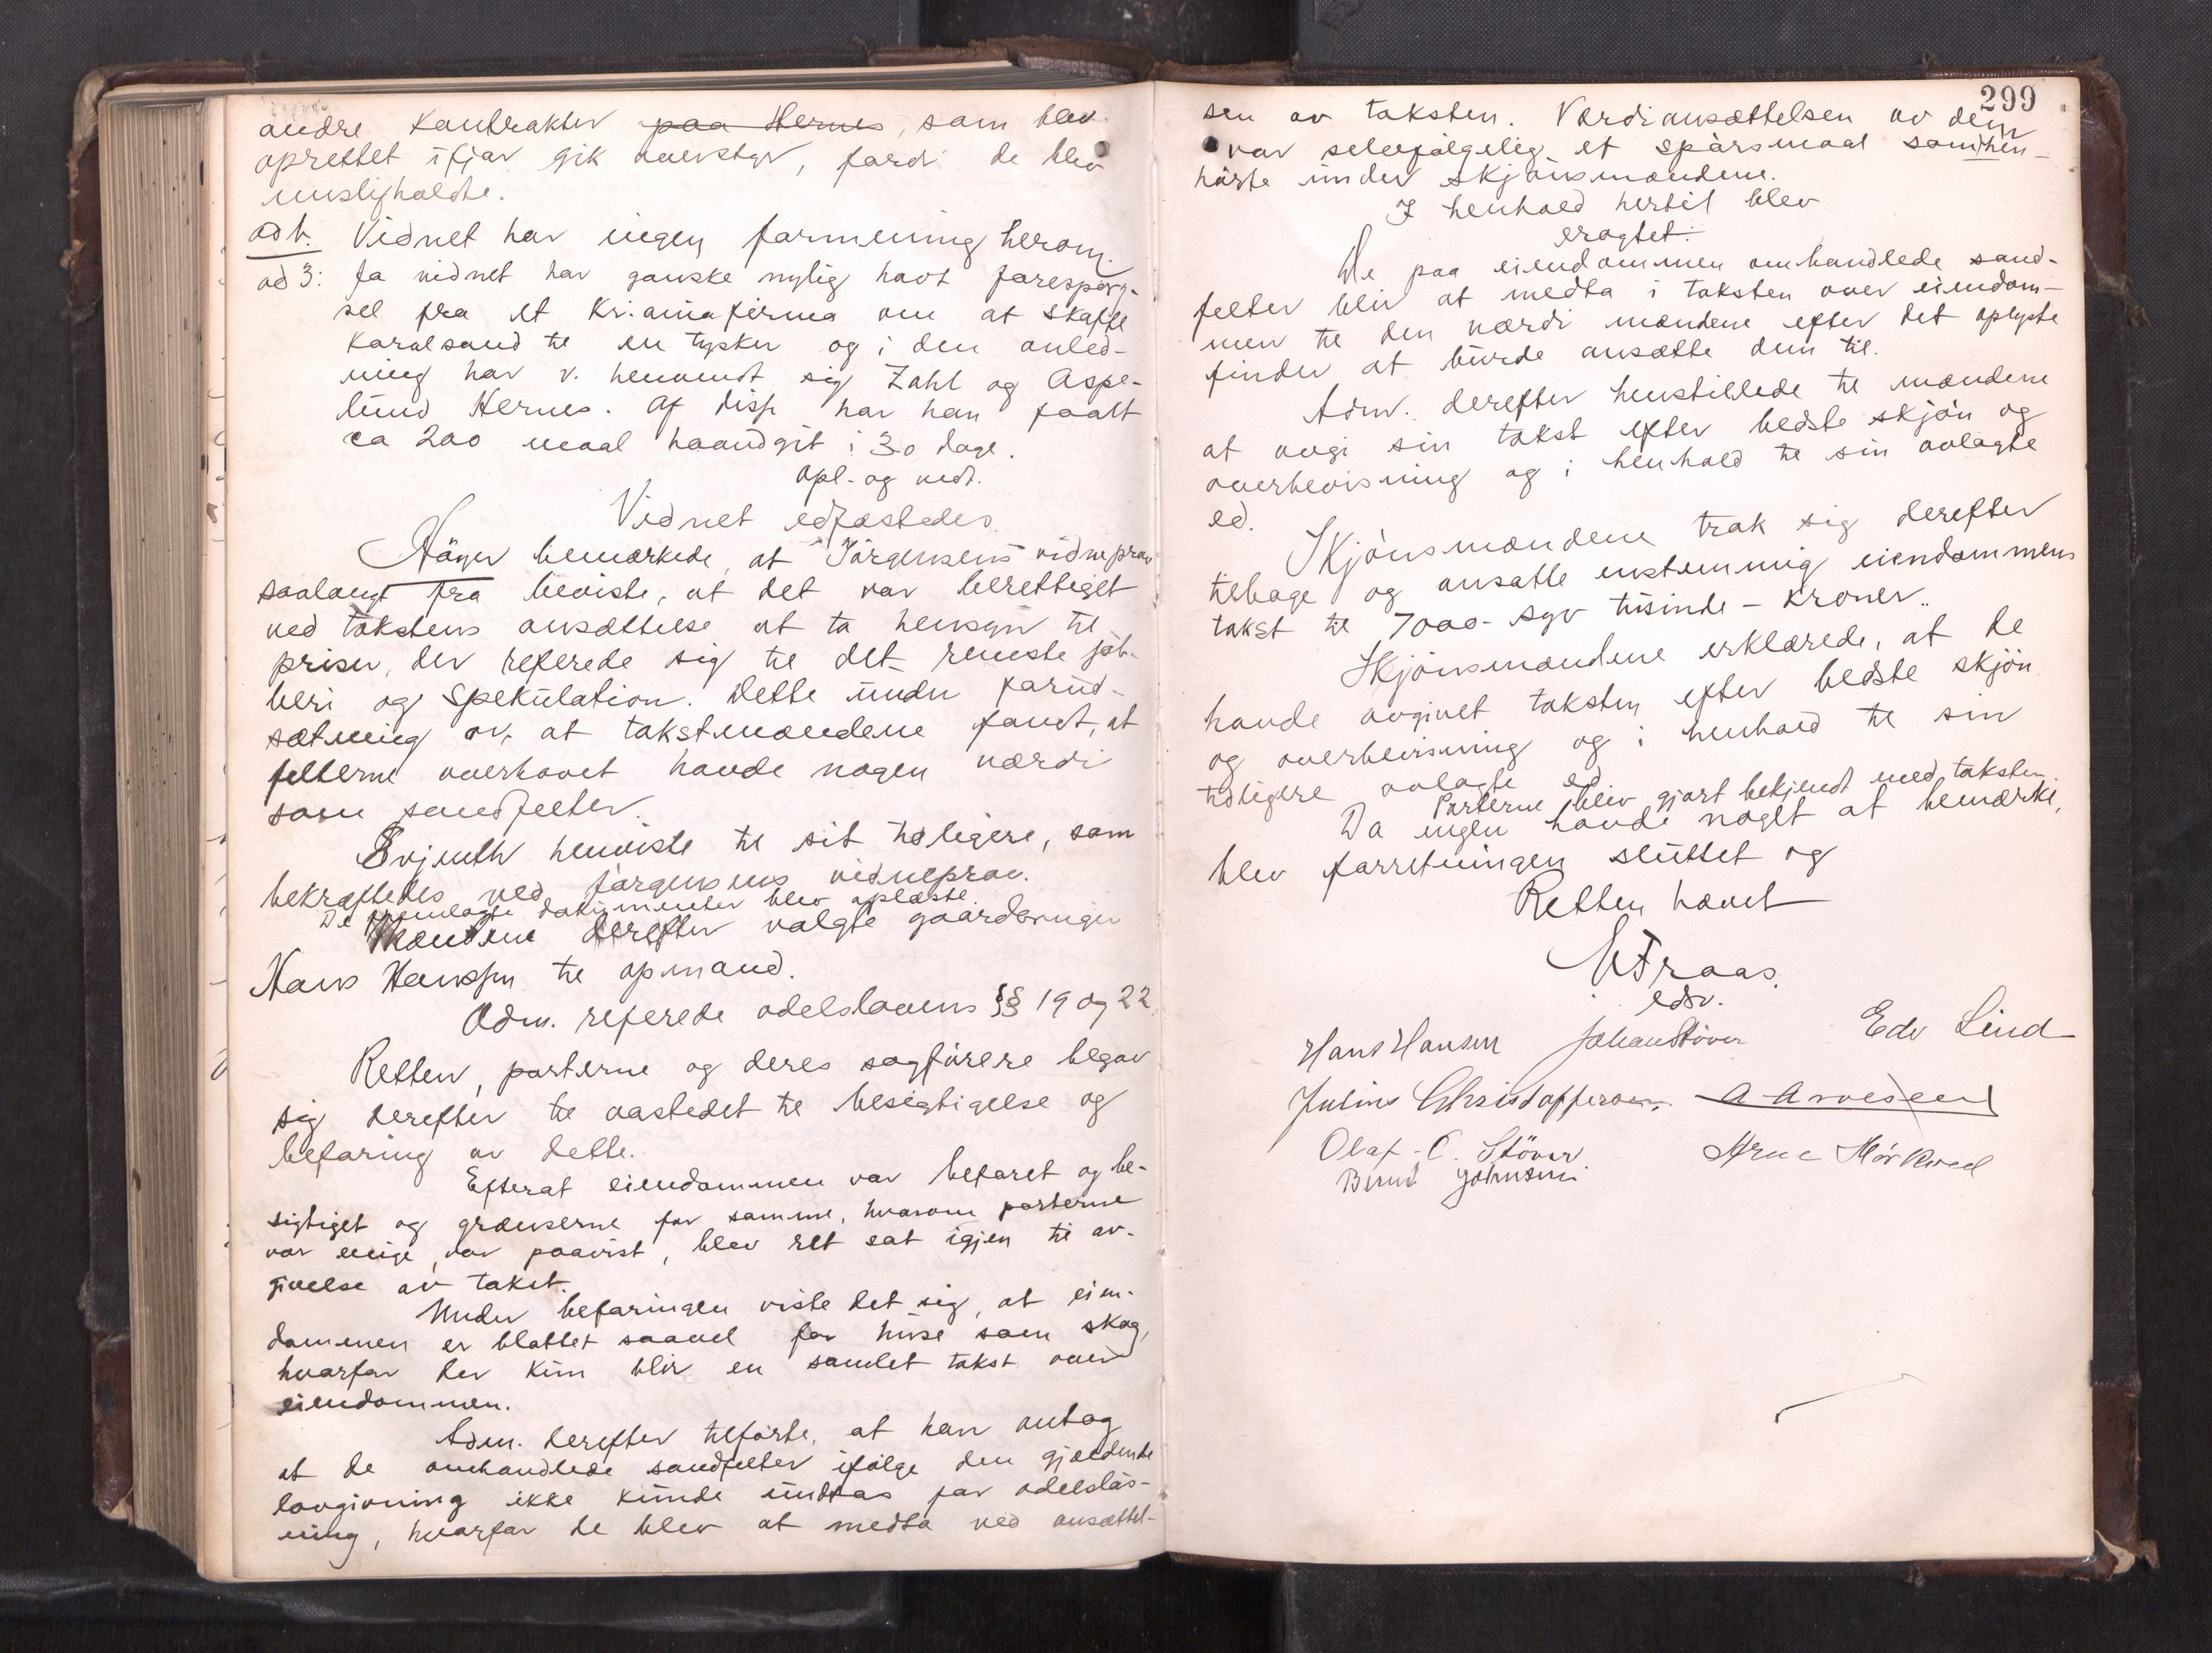 andre kontrakter paa Hernes, som blev
oprettet ifjor gik overstyr, fordi de blev
misligholdte.
ad 2. Vidnet har ingen formening herom.
ad 3: Ja vidnet har ganske nylig havt forespørg-
sel fra et Kr:aniafirma om at skaffe
koralsand til en tysker og i den anled-
ning har v. henvendt sig Zahl og Aspe-
lund Hernes. Af disse har han faatt
ca 200 maal haandgit i 30 dage.
Opl. og vedt.
Vidnet edfæstedes.
Høyer bemærkede, at Jørgensens vidneprov
saalangt fra beviste, at det var berettiget
ved takstens ansættelse at ta hensyn til
priser, der referede sig til det reneste job-
beri og spekulation. Dette under forud-
sætning av, at takstmændene fandt, at
felterne overhovet havde nogen værdi
som sandfelter.
Evjenth henviste til sit tidligere, som
bekræftedes ved Jørgensens vidneprov.
De fremlagte dokumenter blev oplæste.
Mændene derefter valgte gaardbruger
Hans Hansen til opmand.
Adm. referede odelslovens §§ 19 og 22.
Retten, parterne og deres sagførere begav
sig derefter til aastedet til besigtigelse og
befaring av dette.
Efterat eiendommen var befaret og be-
sigtiget og grænserne for samme, hvorom parterne
var enige, var paavist, blev ret sat igjen til av-
givelse av takst.
Under befaringen viste det sig, at eien-
dommen er blottet saavel for huse som skog,
hvorfor der kun blir en samlet takst over
eiendommen.
Adm. derefter tilførte, at han antog
at de omhandlede sandfelter ifølge den gjældende
lovgivning ikke kunde undtas for odelsløs-
ning, hvorfor de blev at medta ved ansættel-
299
sen av taksten. Værdiansættelsen av dem
var selvfølgelig et spørsmaal som hen-
hørte under skjønsmændene.
I henhold hertil blev
eragtet:
De paa eiendommen omhandlede sand-
felter blir at medta i taksten over eiendom-
men til den værdi mændene efter det oplyste
finder at burde ansætte dem til.
Adm. derefter henstillede til mændene
at avgi sin takst efter bedste skjøn og
overbevisning og i henhold til sin avlagte
ed.
Skjønsmændene trak sig derefter
tilbage og ansatte enstemmig eiendommens
takst til 7000 - syv tusinde - kroner.
Skjønsmændene erklærede, at de
havde avgivet taksten efter bedste skjøn
og overbevisning og i henhold til sin
tidligere avlagte ed.
Parterne blev gjort bekjendt med taksten.
Da ingen havde noget at bemærke,
blev forretningen sluttet og
Retten hævet
Fraas.
edsv.
Hans Hansen Johan Støver Edv Lind
Julius Christoffersen. A Arvesen
Olaf C. Støver Arne Mørkved
Bernt Johnsen